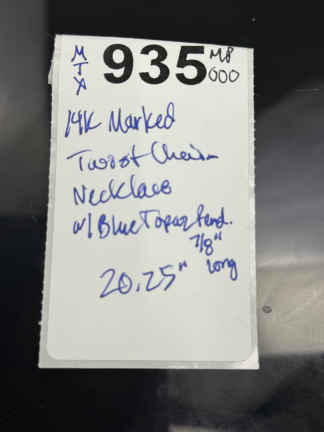 MTX 935 M8
000
14K Marked
Twist Chain
Necklace
w/ Blue Topaz Pend.
7/8"
20.25" long